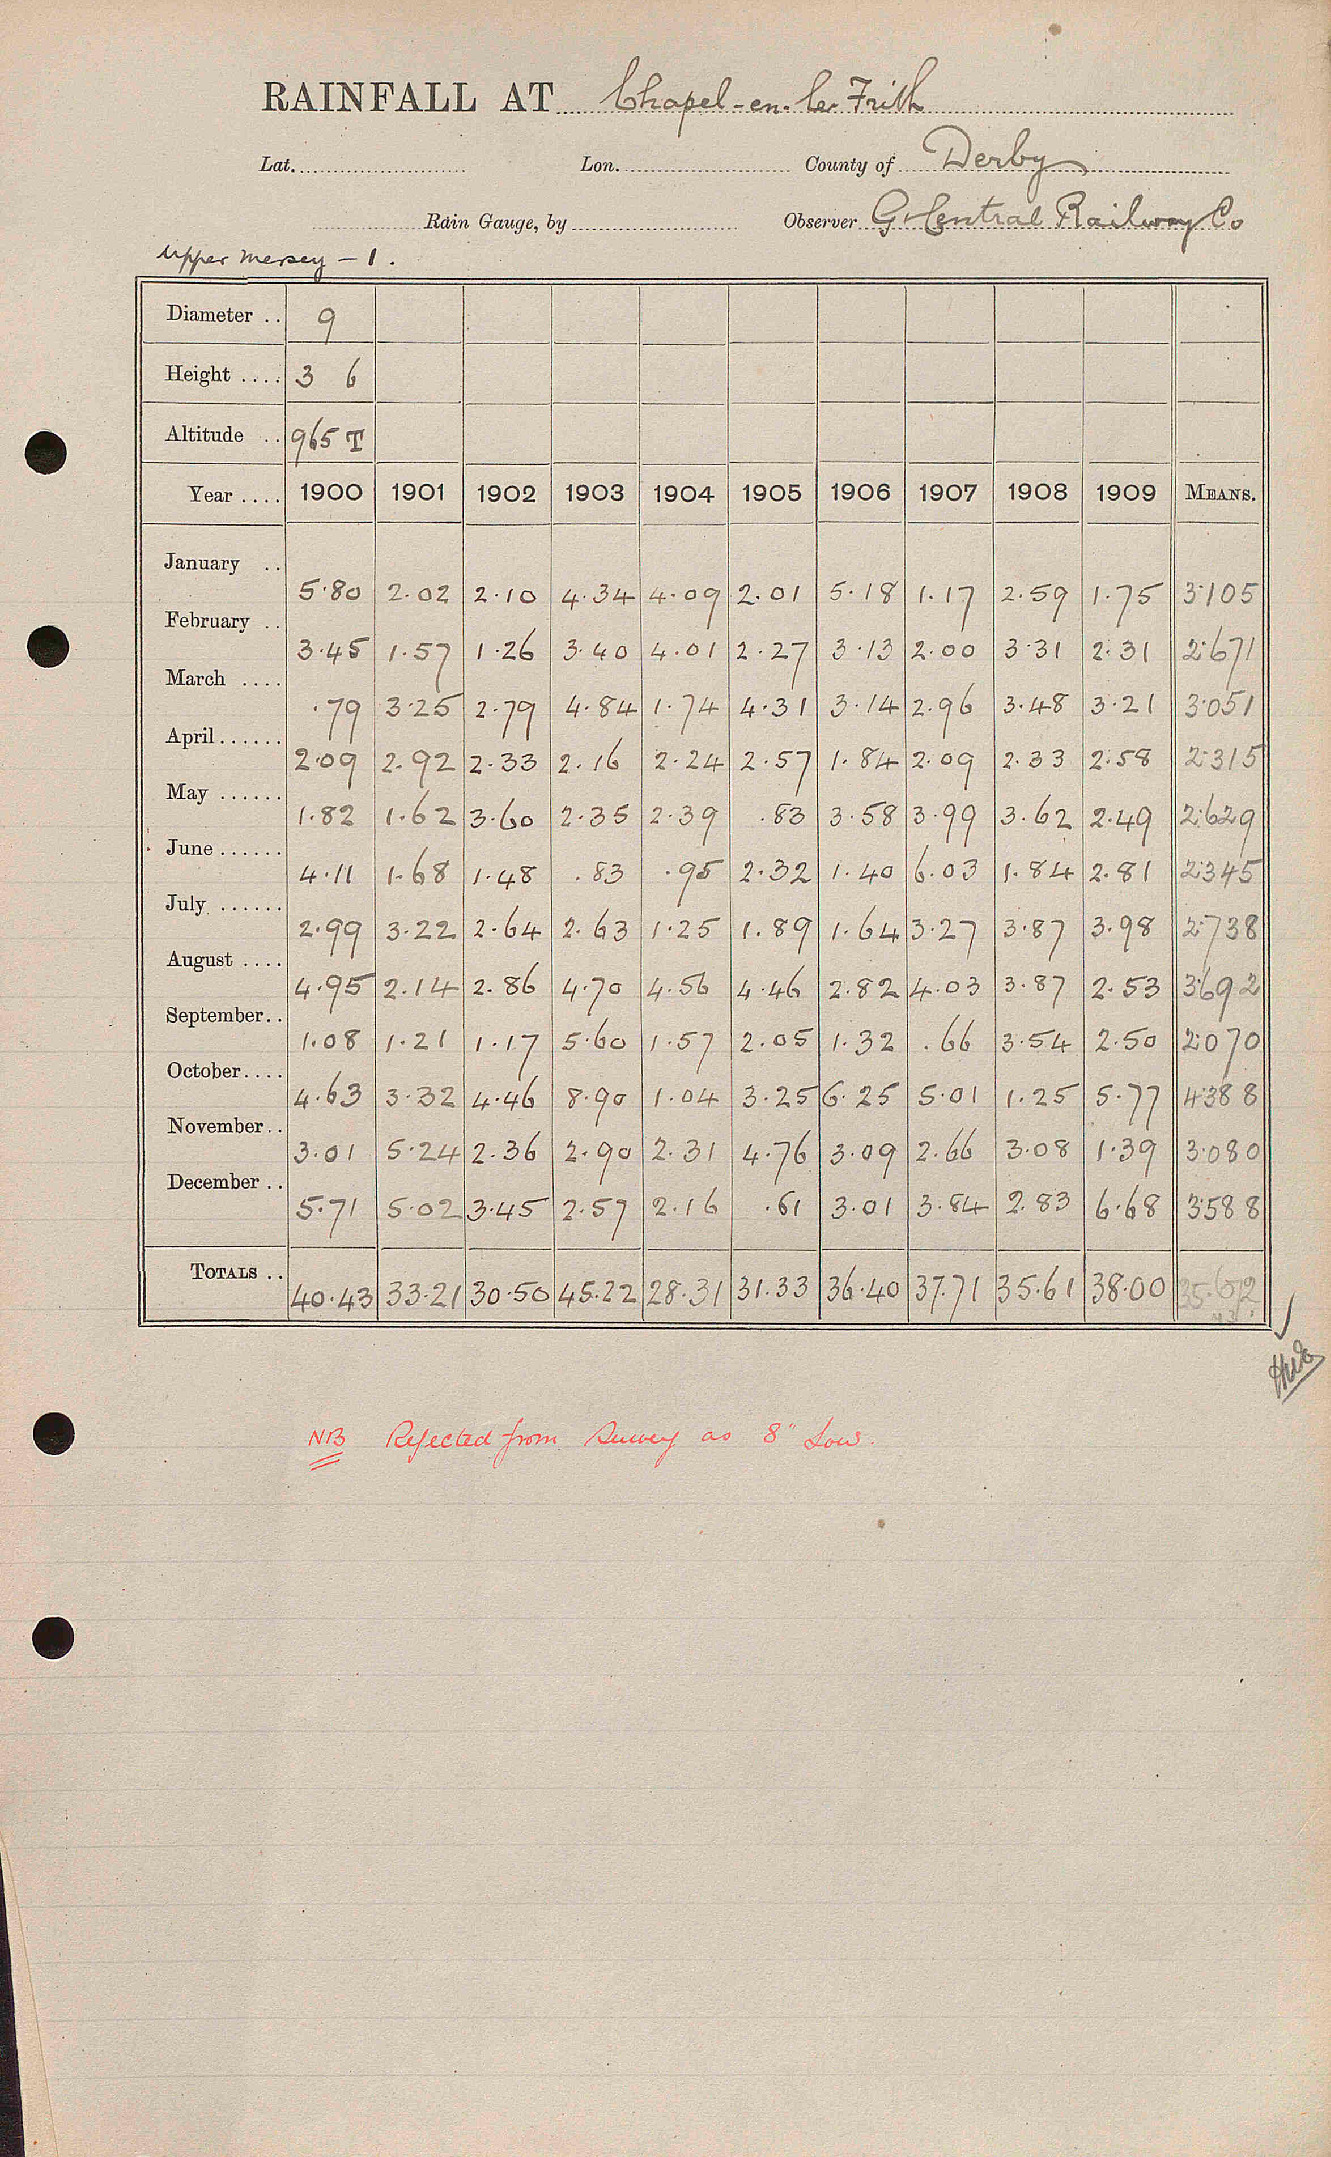 RAINFALL AT Chapel-en-le-Frith
Lat. Lon. County of Derby
Rain Gauge, by Observer G. Central Railway Co
Upper Mersey – 1.
Diameter .. 9
Height .... 3 6
Altitude .. 965 T
Year .... 1900 1901 1902 1903 1904 1905 1906 1907 1908 1909 MEANS.
January .. 5.80 2.02 2.10 4.34 4.09 2.01 5.18 1.17 2.59 1.75 3.105
February .. 3.45 1.57 1.26 3.40 4.01 2.27 3.13 2.00 3.31 2.31 2.671
March .... .79 3.25 2.79 4.84 1.74 4.31 3.14 2.96 3.48 3.21 3.051
April ...... 2.09 2.92 2.33 2.16 2.24 2.57 1.84 2.09 2.33 2.58 2.315
May ...... 1.82 1.62 3.60 2.35 2.39 .83 3.58 3.99 3.62 2.49 2.629
June ...... 4.11 1.68 1.48 .83 .95 2.32 1.40 6.03 1.84 2.81 2.345
July ...... 2.99 3.22 2.64 2.63 1.25 1.89 1.64 3.27 3.87 3.98 2.738
August .... 4.95 2.14 2.86 4.70 4.56 4.46 2.82 4.03 3.87 2.53 3.692
September .. 1.08 1.21 1.17 5.60 1.57 2.05 1.32 .66 3.54 2.50 2.070
October .... 4.63 3.32 4.46 8.90 1.04 3.25 6.25 5.01 1.25 5.77 4.388
November .. 3.01 5.24 2.36 2.90 2.31 4.76 3.09 2.66 3.08 1.39 3.080
December .. 5.71 5.02 3.45 2.57 2.16 .61 3.01 3.84 2.83 6.68 3.588
TOTALS .. 40.43 33.21 30.50 45.22 28.31 31.33 36.40 37.71 35.61 38.00 35.672
NB Rejected from Survey as 8" Low.